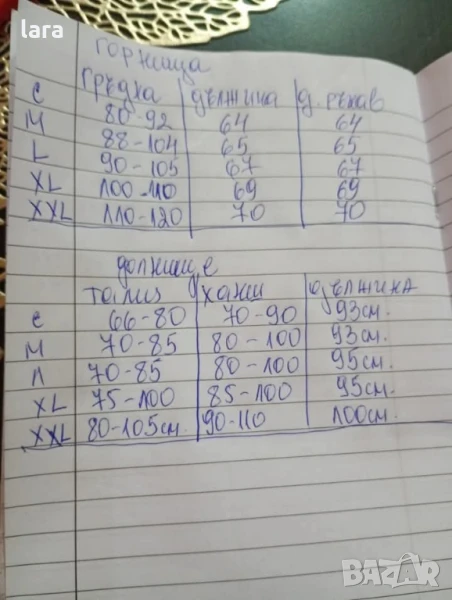 lara
горница
гръдна дължина д. ръкав
С 80-92 64 64
М 88-104 65 65
L 90-105 67 67
XL 100-110 69 69
XXL 110-120 70 70
долнище
талия ханш дължина
С 66-80 70-90 93см.
М 70-85 80-100 93см.
Л 70-85 80-100 95см.
XL 75-100 85-100 95см.
XXL 80-105см. 90-110 100см.
BAZAR